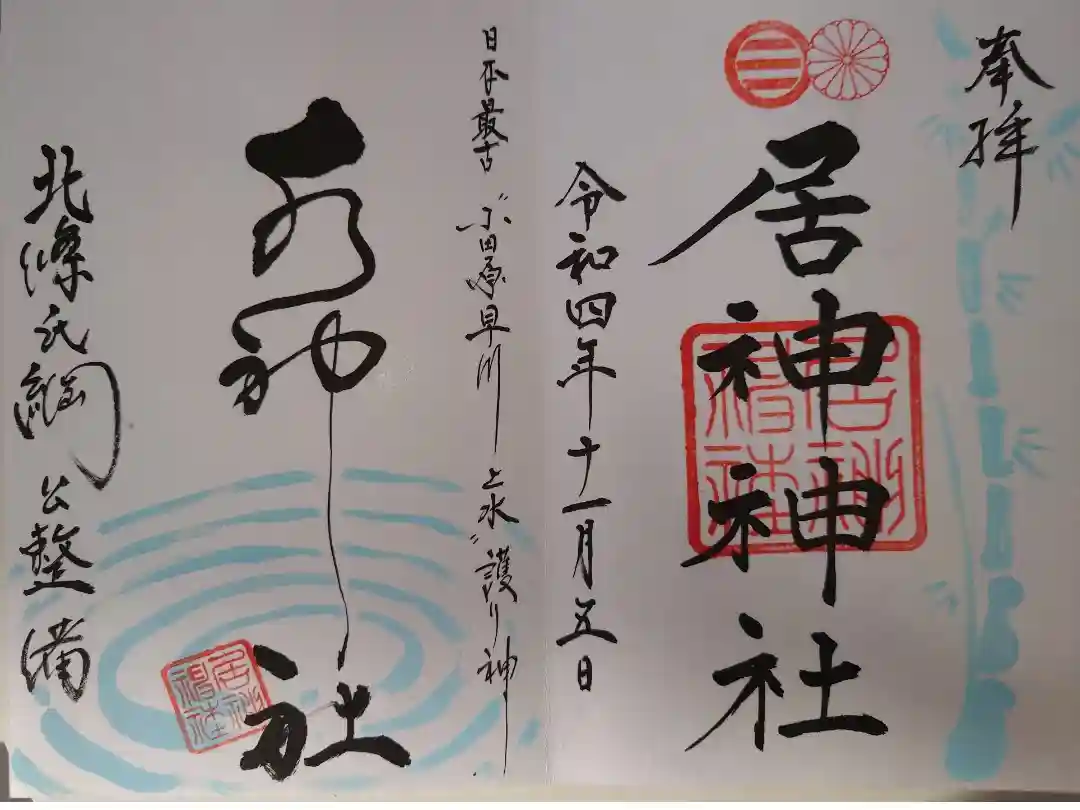 奉拝
居神神社
居神神社
令和四年十一月五日
日本最古“小田原早川上水”護り神
水神社
居神神社
北條氏綱公整備